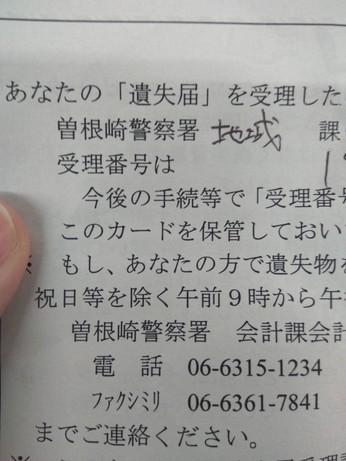 あなたの「遺失届」を受理した
曽根崎警察署 地域 課
受理番号は
今後の手続等で「受理番号
このカードを保管しておい
※ もし、あなたの方で遺失物を
祝日等を除く午前9時から午
曽根崎警察署 会計課会計
電 話 06-6315-1234
ﾌｧｸｼﾐﾘ 06-6361-7841
までご連絡ください。